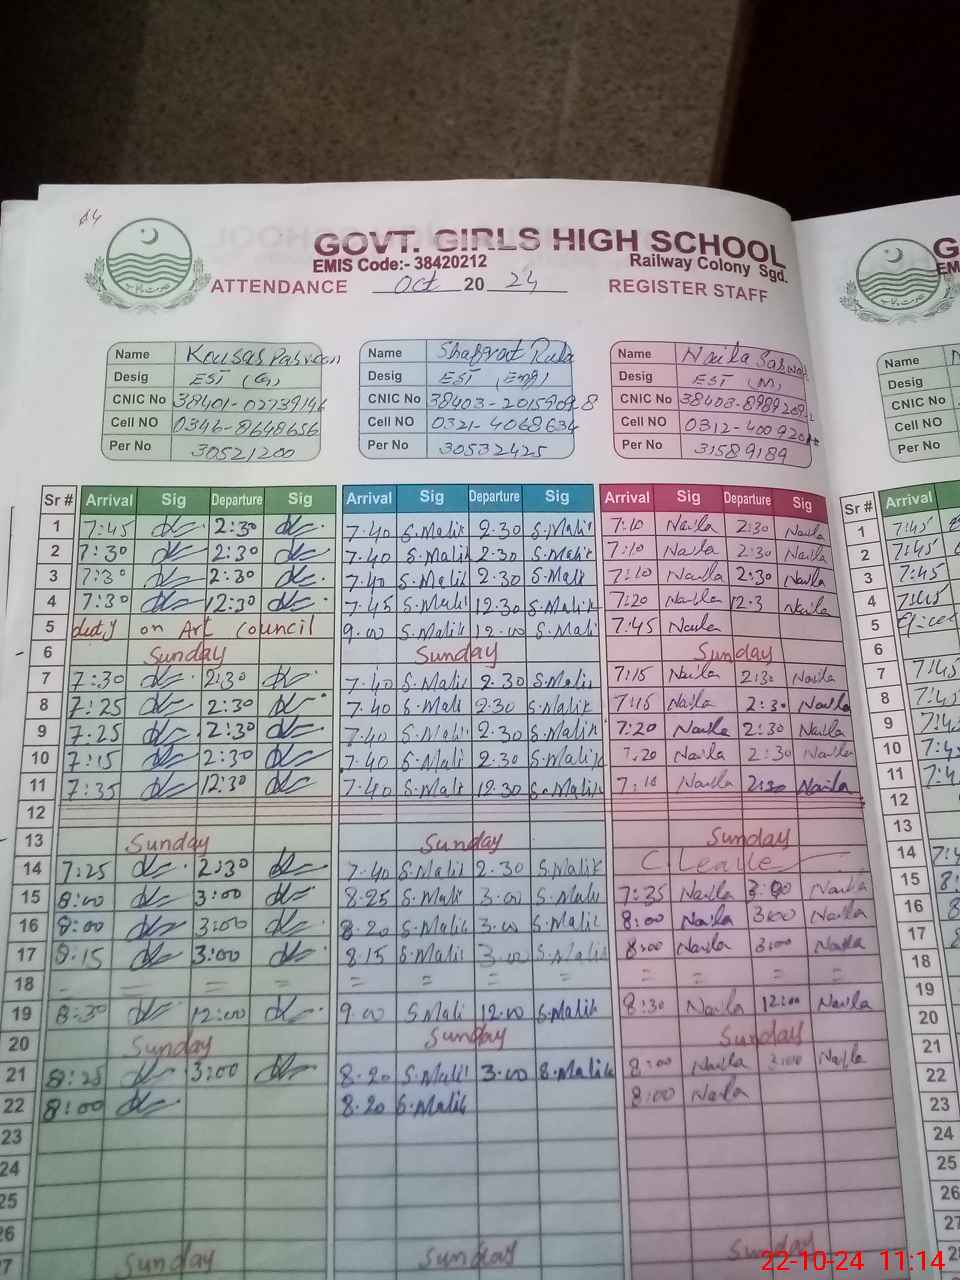 GOVT. GIRLS HIGH SCHOOL
EMIS Code:- 38420212 Railway Colony Sgd.
ATTENDANCE Oct 20 24 REGISTER STAFF
Name Kousas Parveen Name Shafqat Name Naila Sarwar Name
Desig EST (G) Desig EST (Eng) Desig EST (M) Desig
CNIC No 38401-02739146 CNIC No 38403-20159098 CNIC No CNIC No
Cell NO 0346-8648656 Cell NO 0321-4068634 Cell NO Cell NO
Per No 30521200 Per No 30532425 Per No 31589189 Per No
Sr # Arrival Sig Departure Sig Arrival Sig Departure Sig Arrival Sig Departure Sig Sr #
1 7:45 2:30 7.40 S.Malik 2.30 S.Malik 7:10 Naila 2:30 Naila 1 7:45
2 7:30 2:30 7.40 S.Malik 2.30 S.Malik 7:10 Naila 2:30 Naila 2 7:45
3 7:30 2:30 7.40 S.Malik 2.30 S.Malik 7:10 Naila 2:30 Naila 3 7:45
4 7:30 12:30 7.45 S.Malik 12.30 S.Malik 7:20 Naila 12.3 Naila 4 7:45
5 duty on Art Council 9.00 S.Malik 12.00 S.Malik 7:45 Naila 5
6 Sunday Sunday Sunday 6
7 7:30 2:30 7.40 S.Malik 2.30 S.Malik 7:15 Naila 2:30 Naila 7 7:45
8 7:25 2:30 7.40 S.Malik 2.30 S.Malik 7:15 Naila 2:30 Naila 8
9 7:25 2:30 7.40 S.Malik 2.30 S.Malik 7:20 Naila 2:30 Naila 9
10 7:15 2:30 7.40 S.Malik 2.30 S.Malik 7.20 Naila 2:30 Naila 10
11 7:35 12:30 7.40 S.Malik 12.30 S.Malik 7:10 Naila Naila 11
12 12
13 Sunday Sunday Sunday 13
14 7:25 2:30 7.40 S.Malik 2.30 S.Malik C. Leave 14
15 8:00 3:00 8.25 S.Malik 3.00 S.Malik 7:35 Naila 3:00 Naila 15
16 8:00 3:00 8.20 S.Malik 3.00 S.Malik 8:00 Naila 3:00 Naila 16
17 8:15 3:00 8.15 S.Malik 3.00 S.Malik 8:00 Naila 3:00 Naila 17
18 = = = = = = = = = = = 18
19 8:30 12:00 9.00 S.Malik 12.00 S.Malik 8:30 Naila 12:00 Naila 19
20 Sunday Sunday Sunday 20
21 8:25 3:00 8.20 S.Malik 3.00 S.Malik 8:00 Naila 3:00 Naila 21
22 8:00 8.20 S.Malik 8:00 Naila 22
23 23
24 24
25 25
26 26
27 Sunday Sunday Sunday 27
22-10-24 11:14